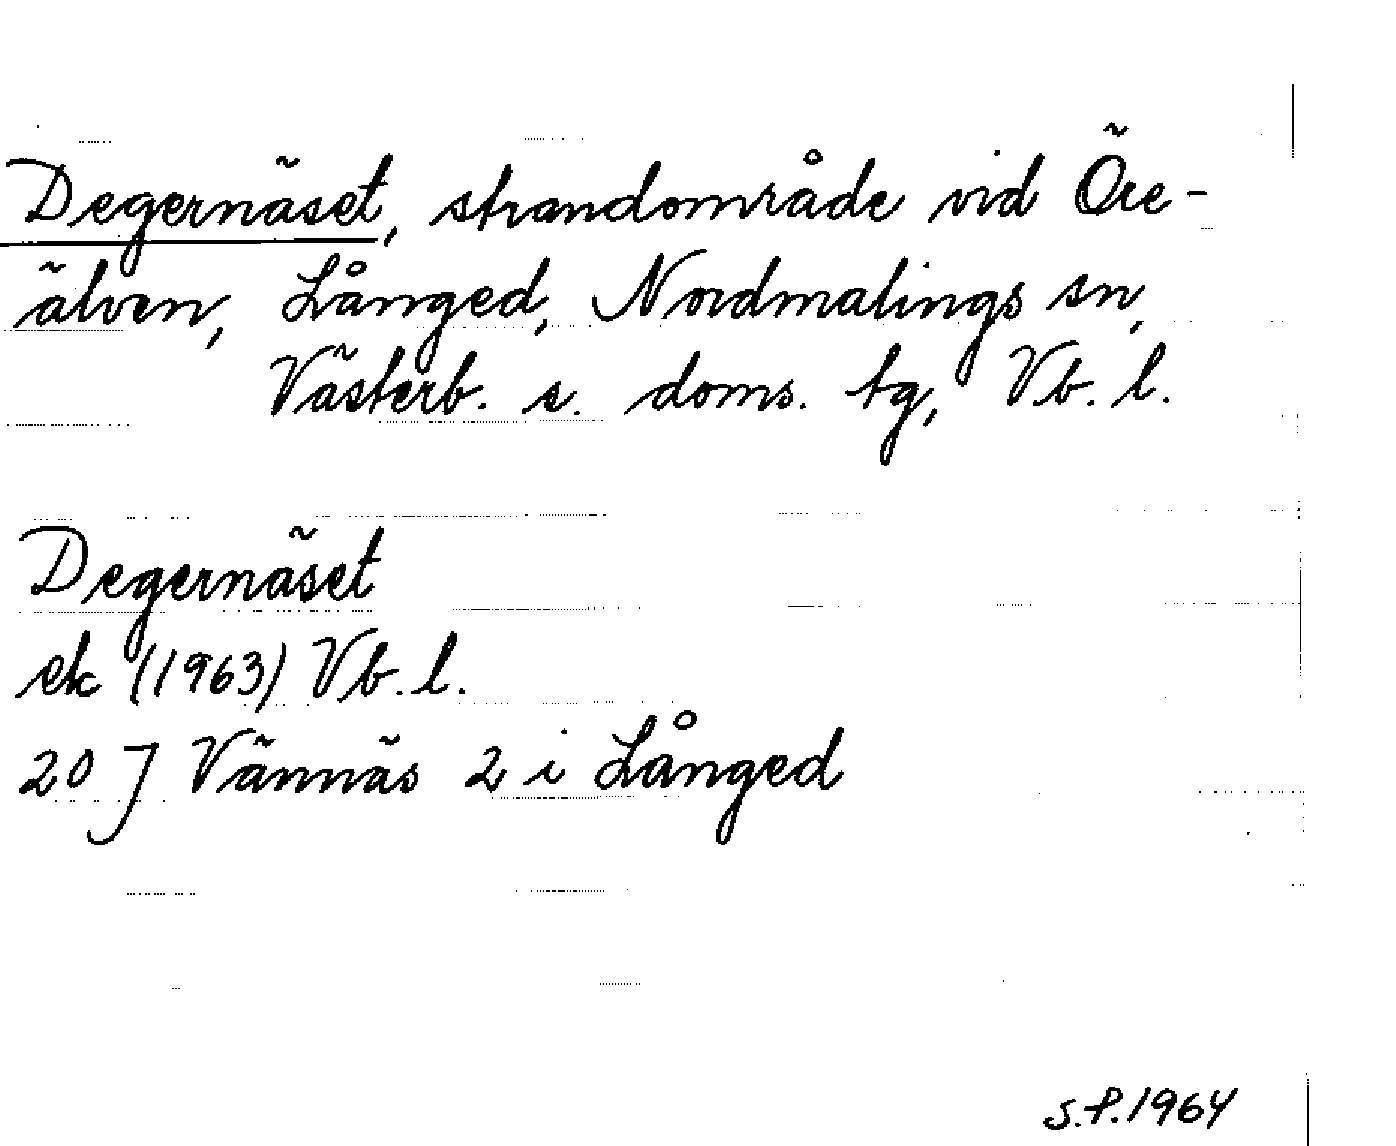 Degernäset, strandområde vid Öre-
älven, Långed, Nordmalings sn,
Västerb. s. doms. tg, Vb. l.
Degernäset
ek (1963) Vb. l.
20 J Vännäs 2 i Långed
S.P. 1964